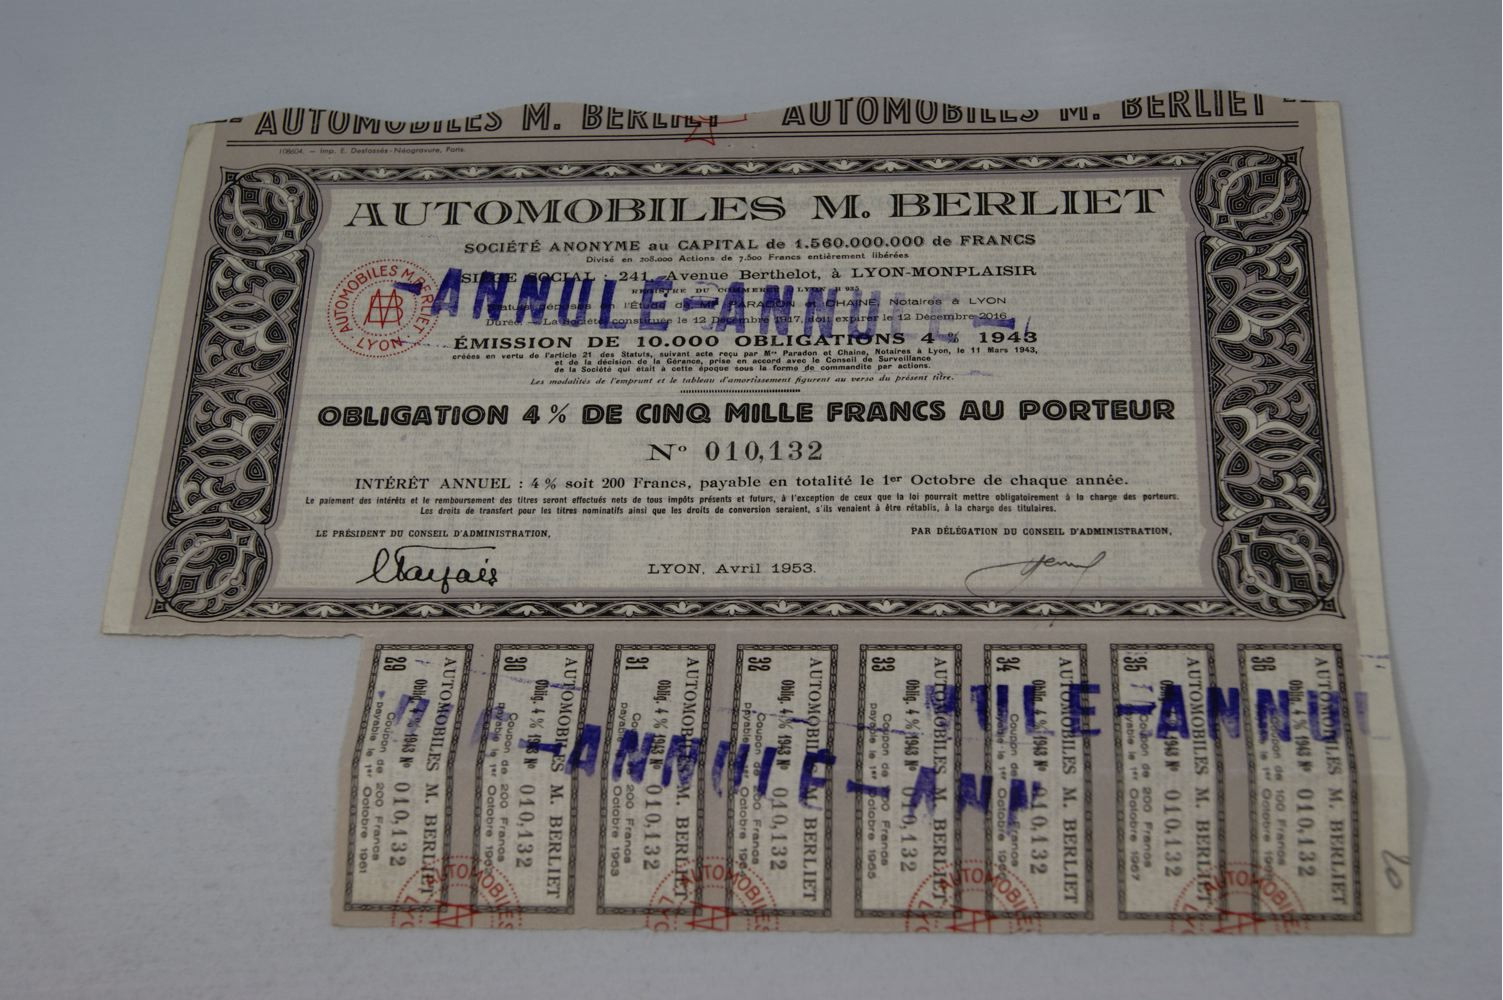 AUTOMOBILES M. BERLIET AUTOMOBILES M. BERLIET
108604. — Imp. E. Desfossés - Néogravure, Paris.
AUTOMOBILES M. BERLIET
SOCIÉTÉ ANONYME au CAPITAL de 1.560.000.000 de FRANCS
Divisé en 208.000 Actions de 7.500 Francs entièrement libérées
SIÈGE SOCIAL : 241, Avenue Berthelot, à LYON-MONPLAISIR
REGISTRE DU COMMERCE LYON B 935
Statuts déposés en l'Étude de Mes PARADON et CHAINE, Notaires à LYON
Durée. — La Société constituée le 12 Décembre 1917, doit expirer le 12 Décembre 2016
ANNULÉ-ANNULÉ-
AUTOMOBILES M. BERLIET
LYON
ÉMISSION DE 10.000 OBLIGATIONS 4 % 1943
créées en vertu de l'article 21 des Statuts, suivant acte reçu par Mes Paradon et Chaine, Notaires à Lyon, le 11 Mars 1943,
et de la décision de la Gérance, prise en accord avec le Conseil de Surveillance
de la Société qui était à cette époque sous la forme de commandite par actions.
Les modalités de l'emprunt et le tableau d'amortissement figurent au verso du présent titre.
OBLIGATION 4 % DE CINQ MILLE FRANCS AU PORTEUR
N° 010,132
INTÉRÊT ANNUEL : 4 % soit 200 Francs, payable en totalité le 1er Octobre de chaque année.
Le paiement des intérêts et le remboursement des titres seront effectués nets de tous impôts présents et futurs, à l'exception de ceux que la loi pourrait mettre obligatoirement à la charge des porteurs.
Les droits de transfert pour les titres nominatifs ainsi que les droits de conversion seraient, s'ils venaient à être rétablis, à la charge des titulaires.
LE PRÉSIDENT DU CONSEIL D'ADMINISTRATION,
PAR DÉLÉGATION DU CONSEIL D'ADMINISTRATION,
LYON, Avril 1953.
AUTOMOBILES M. BERLIET
29 Oblig. 4 % 1943 N° 010,132
Coupon de 200 Francs
payable le 1er Octobre 1961
AUTOMOBILES M. BERLIET
30 Oblig. 4 % 1943 N° 010,132
Coupon de 200 Francs
payable le 1er Octobre
AUTOMOBILES M. BERLIET
31 Oblig. 4 % 1943 N° 010,132
Coupon de 200 Francs
payable le 1er Octobre 1963
AUTOMOBILES M. BERLIET
32 Oblig. 4 % 1943 N° 010,132
Coupon de 200 Francs
payable le 1er Octobre
AUTOMOBILES M. BERLIET
33 Oblig. 4 % 1943 N° 010,132
Coupon de 200 Francs
payable le 1er Octobre 1965
AUTOMOBILES M. BERLIET
34 Oblig. 4 % 1943 N° 010,132
Coupon de 200 Francs
payable le 1er Octobre
AUTOMOBILES M. BERLIET
35 Oblig. 4 % 1943 N° 010,132
Coupon de 200 Francs
payable le 1er Octobre 1967
AUTOMOBILES M. BERLIET
36 Oblig. 4 % 1943 N° 010,132
Coupon de 100 Francs
payable le 1er Octobre
-ANNULÉ-ANN
ULÉ-ANNU
AUTOMOBILES
LYON
AUTOMOBILES
AUTOMOBILES
AUTOMOBILES